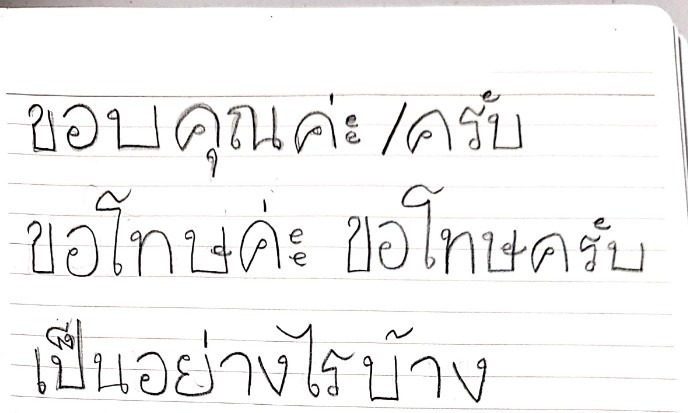 ขอบคุณค่ะ/ครับ
ขอโทษค่ะ ขอโทษครับ
เป็นอย่างไรบ้าง